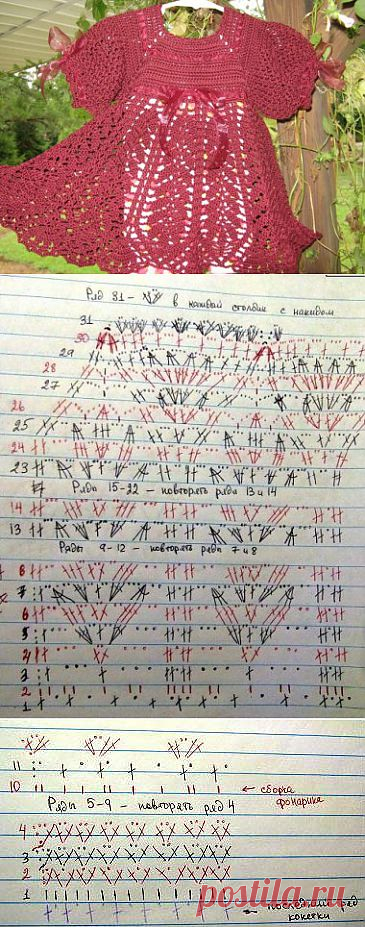 Ряд 31 - в каждый столбик с накидом
31
30
29
28
27
26
25
24
23
Ряды 15-22 - повторять ряды 13 и 14
14
13
Ряды 9-12 - повторять ряды 7 и 8
8
7
6
5
4
3
2
1
11
10 ← сборка фонарика
Ряды 5-9 - повторять ряд 4
4
3
2
1
← последний ряд кокетки
postila.ru